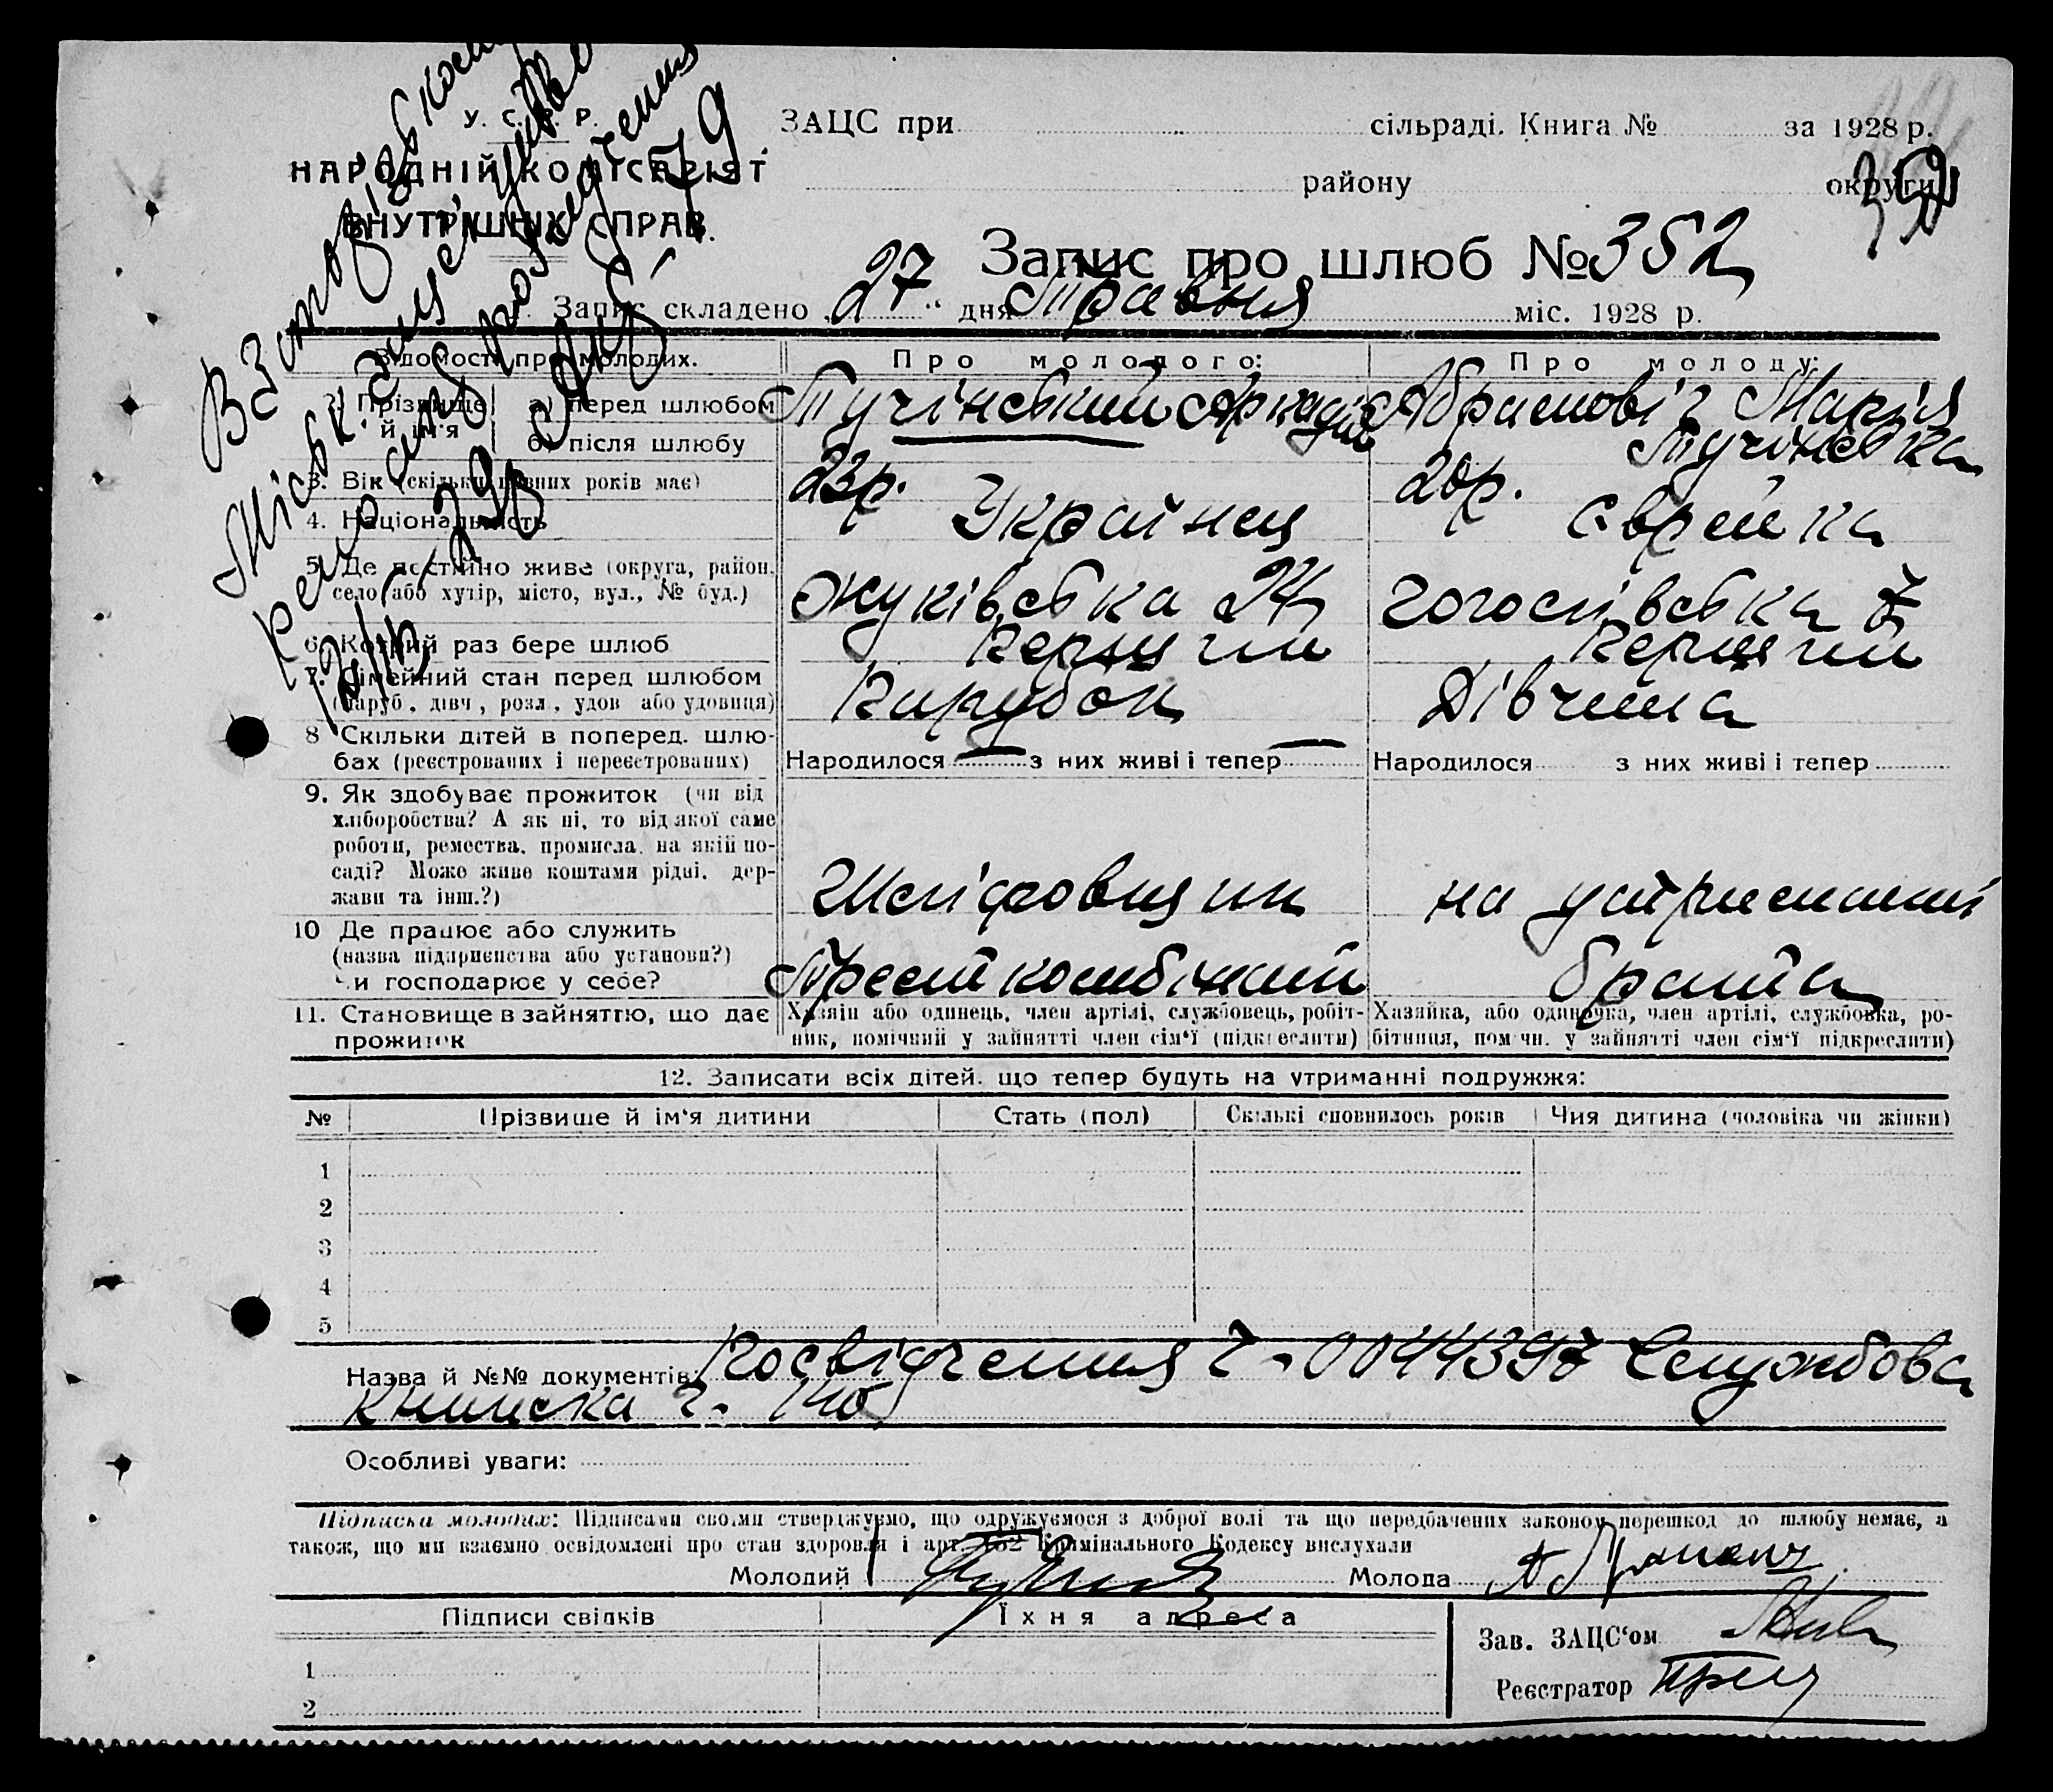 У. С. Р. Р.
НАРОДНІЙ КОМІСАРІЯТ
ВНУТРІШНІХ СПРАВ.
ЗАЦС при сільраді. Книга № за 1928 р.
району округи
Запис про шлюб № 352
Запис складено „ 27 “ дня Травня міс. 1928 р.
Відомости про молодих. Про молодого: Про молоду:
2. Прізвище й ім'я
а) перед шлюбом Тучінський Аркадій Абрамовіч Марія
б) після шлюбу Тучінська
3. Вік (скільки повних років має) 23 р. 20 р.
4. Національність Українец Єврейка
5. Де постійно живе (округа, район, село або хутір, місто, вул., № буд.) Жуківська 24 Гоголівська 7
6. Котрий раз бере шлюб Перший Перший
7. Сімейний стан перед шлюбом
(паруб., дівч., розл., удов або удовиця) Парубок Дівчина
8 Скільки дітей в поперед. шлюбах (реєстрованих і нереєстрованих) Народилося — з них живі і тепер — Народилося з них живі і тепер
9. Як здобуває прожиток (чи від
хліборобства? А як ні, то від якої саме
роботи, ремества, промисла, на якій по-
саді? Може живе коштами рідні, дер-
жави та інш.?) Шліфовщик на утриманні
10 Де працює або служить
(назва підприємства або установи?)
Чи господарює у себе? брата
11. Становище в зайняттю, що дає прожиток
Хазяїн або одинець, член артілі, службовець, робіт-
ник, помічний у зайнятті член сім'ї (підкреслити)
Хазяйка, або одиночка, член артілі, службовка, ро-
бітниця, помічн. у зайнятті член сім'ї підкреслити)
12. Записати всіх дітей, що тепер будуть на утриманні подружжя:
№ Прізвище й ім'я дитини Стать (пол) Скількі сповнилось років Чия дитина (чоловіка чи жінки)
1
2
3
4
5
Назва й №№ документів: Посвідчення ч. 0044397 Службова
книжка ч. 140
Особливі уваги:
Підписка молодих: Підписами своїми стверджуємо, що одружуємося з доброї волі та що передбачених законом перешкод до шлюбу немає, а
також, що ми взаємно освідомлені про стан здоровля і арт. 152 Крімінального Кодексу вислухали
Молодий Молода
Підписи свідків Їхня адреса
Зав. ЗАЦС'ом
Реєстратор
1
2